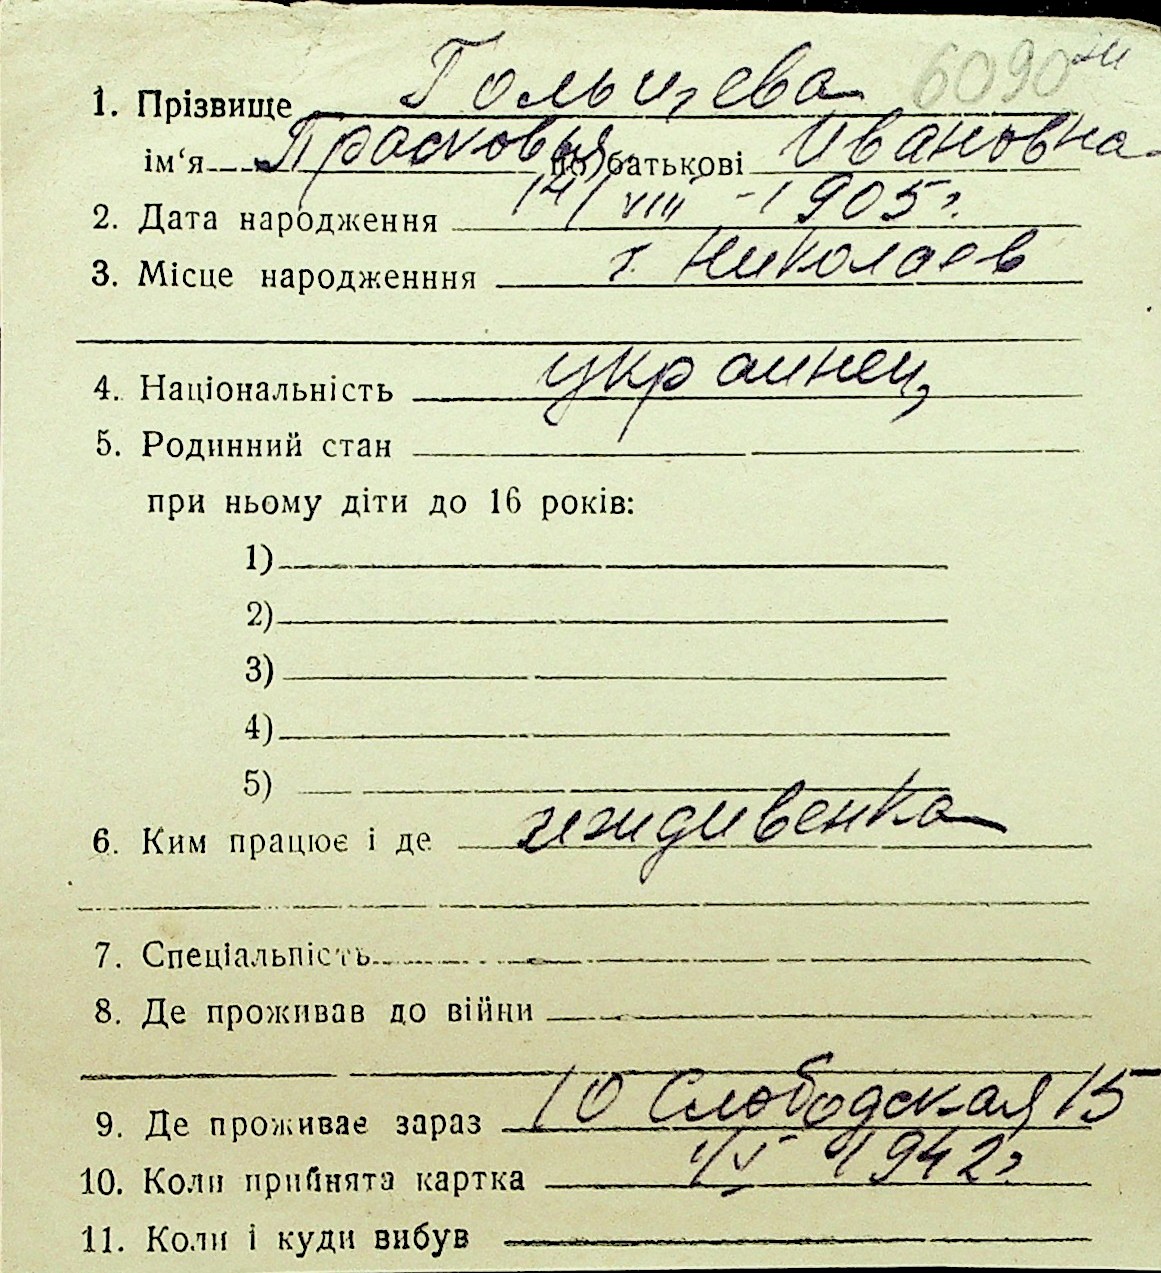 6090
1. Прізвище Гольцева
ім'я Прасковья по батькові Ивановна
2. Дата народження 14/VIII - 1905 г.
3. Місце народженння г. Николаев
4. Національність украинец
5. Родинний стан
при ньому діти до 16 років:
1)
2)
3)
4)
5)
6. Ким працює і де иждивенка
7. Спеціальність
8. Де проживав до війни
9. Де проживає зараз 10 Слободская 15
10. Коли прийнята картка 1/V 1942 г.
11. Коли і куди вибув